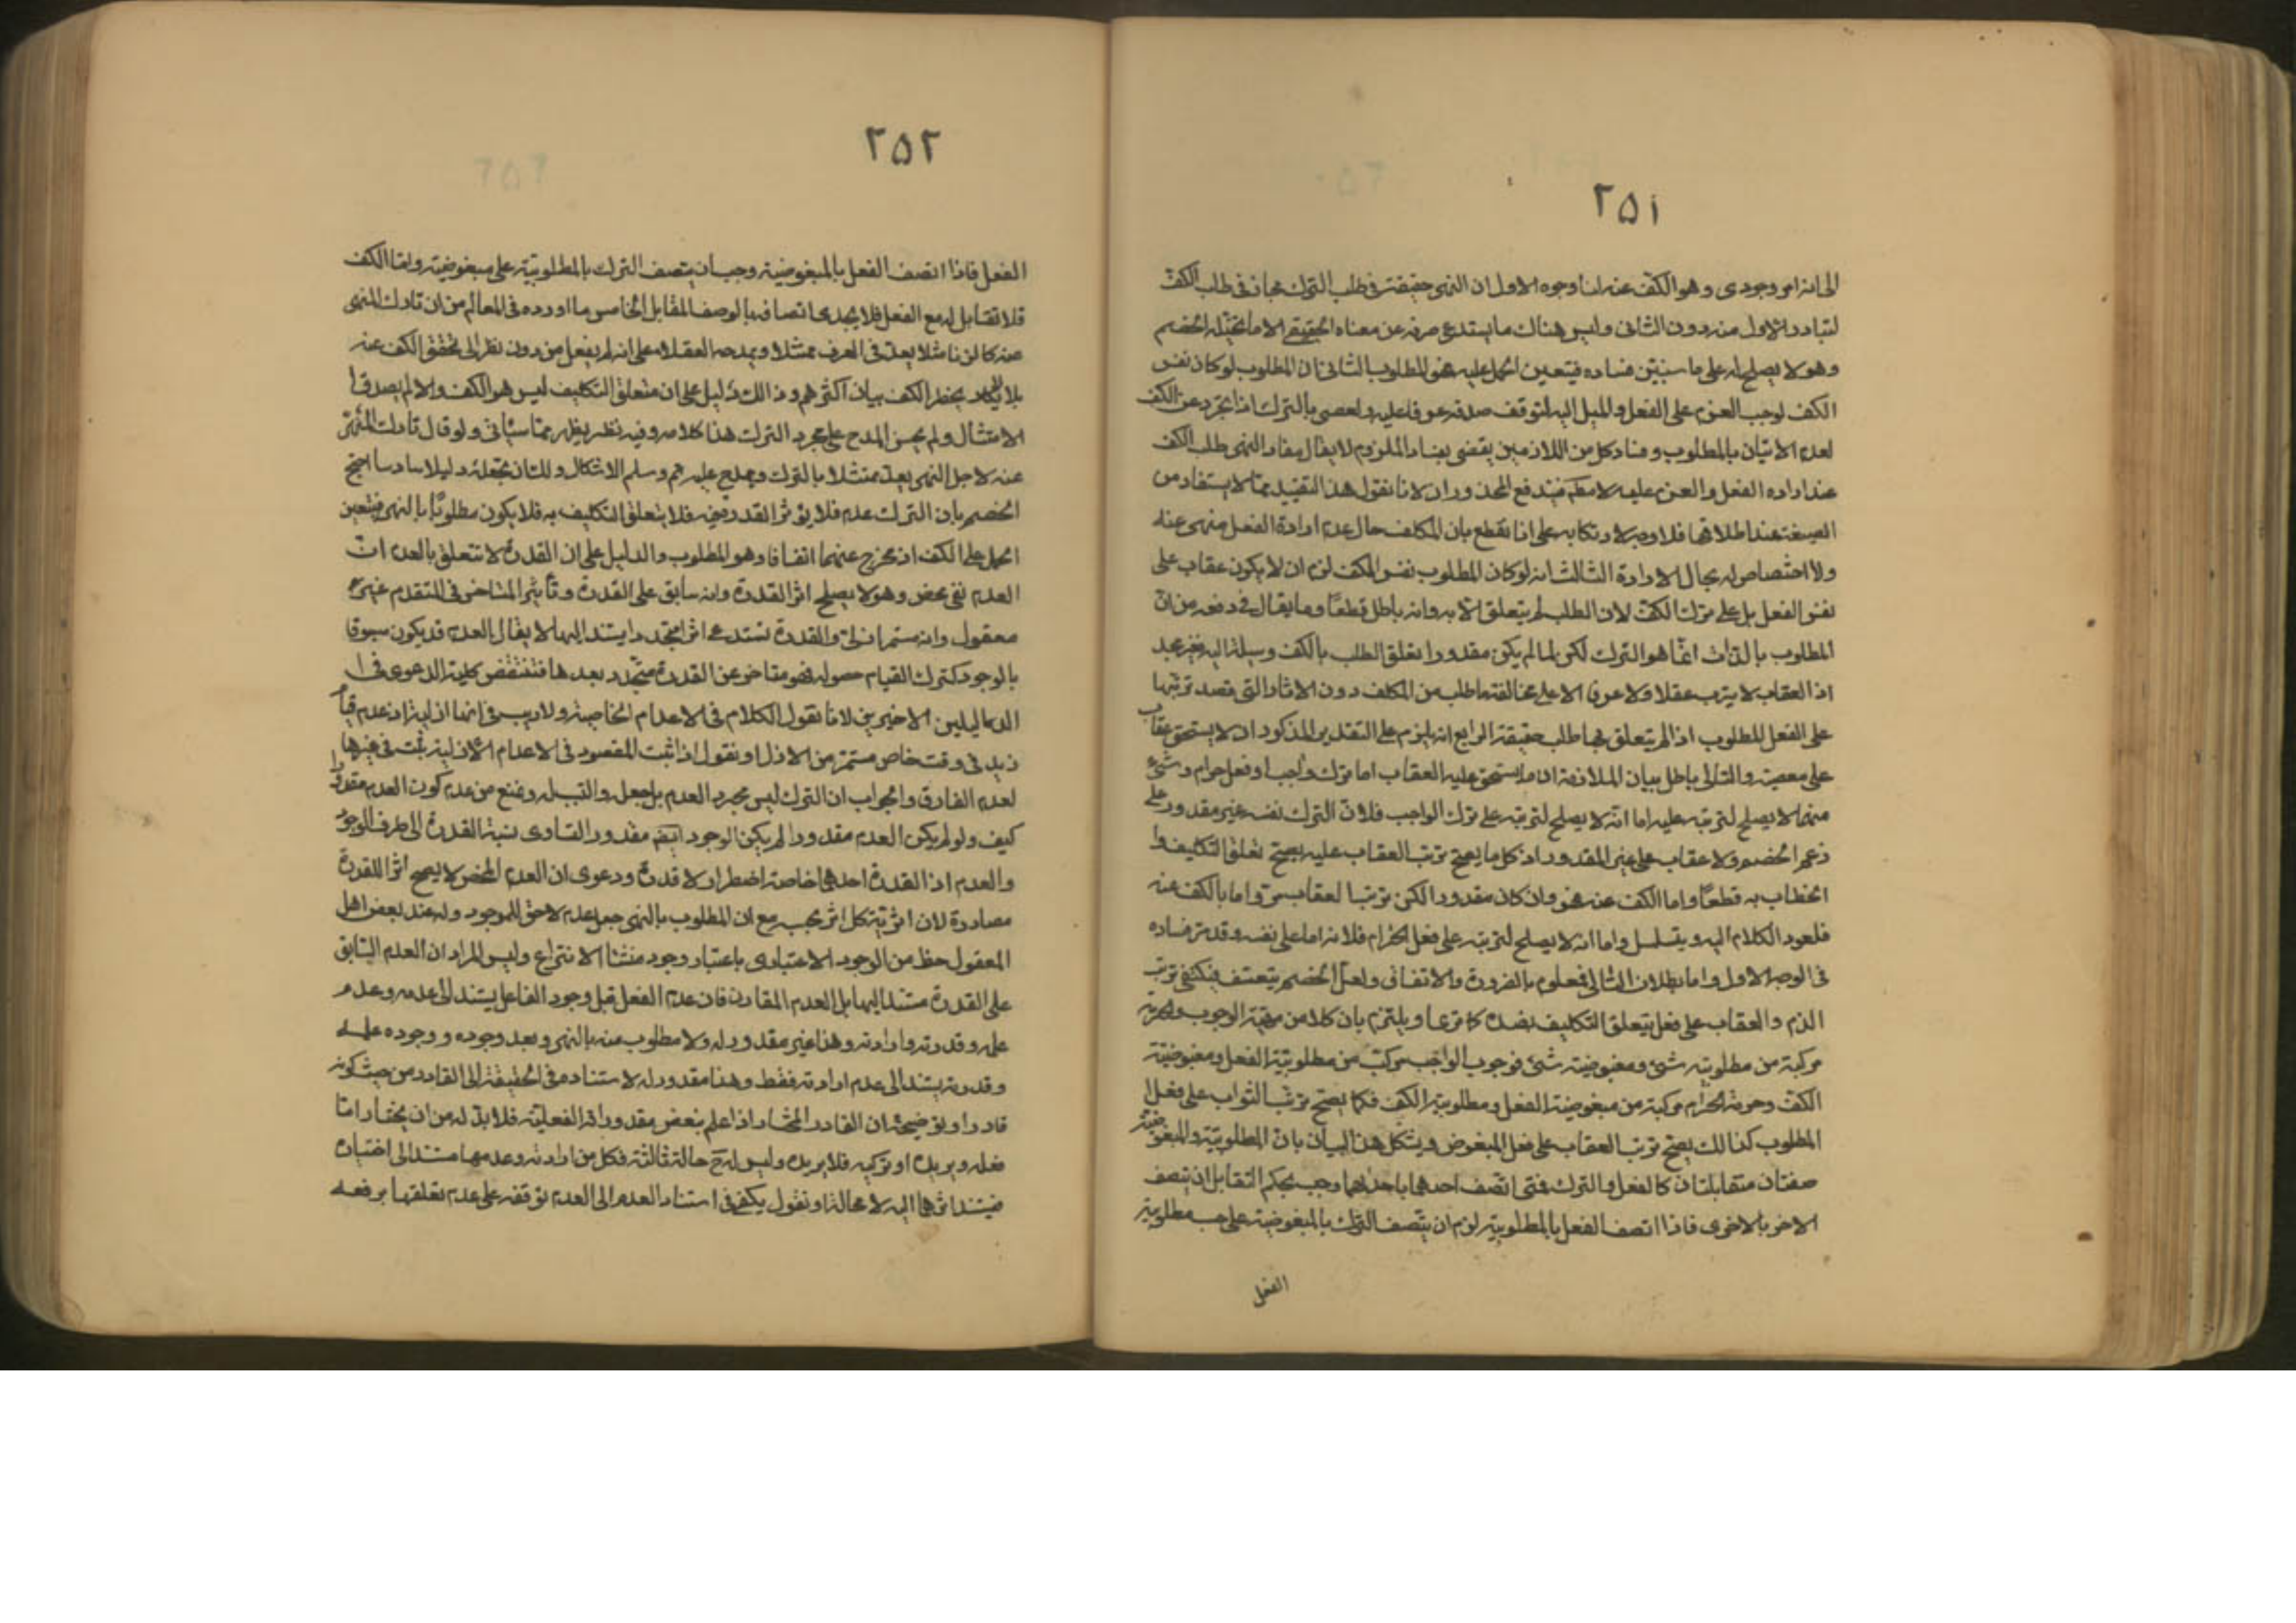 ٢٥١
الى انه امر وجودى وهو الكف عنه لنا وجوه الاول ان النهى حقيقة فى طلب الترك مجاز فى طلب الكف
لتبادر الاول منه دون الثانى وليس هناك ما يستدعى صرفه عن معناه الحقيقى الا ما تخيله الخصم
وهو لا يصلح له على ما سنبين فساده فيتعين الحمل عليه فهو المطلوب الثانى ان المطلوب لو كان نفس
الكف لوجب العزم على الفعل والميل اليه لتوقف صدقه عرفا عليه ولعصى بالترك اذا تجرد عن الكف
لعدم الاتيان بالمطلوب وفساد كل من اللازمين يقضى بفساد الملزوم لا يقال مفاد النهى طلب الكف
عند ارادة الفعل والعزم عليه لا مطلقا فيندفع المحذوران لانا نقول هذا التقييد مما لا يستفاد من
الصيغة عند اطلاقها فلا وجه لارتكابه على انا نقطع بان المكلف حال عدم ارادة الفعل منهى عنه
ولا اختصاص له بحال الارادة الثالث انه لو كان المطلوب نفس الكف لزم ان لا يكون عقاب على
نفس الفعل بل على ترك الكف لان الطلب لم يتعلق الا به وانه باطل قطعا وما يقال فى دفعه من ان
المطلوب بالذات انما هو الترك لكن لما لم يكن مقدورا تعلق الطلب بالكف وسيلة اليه فغير مجد
اذ العقاب لا يترتب عقلا ولا عرفا الا على مخالفة ما طلب من المكلف دون الاثار التى قصد ترتبها
على الفعل المطلوب اذا لم يتعلق بها طلب حقيقة الرابع انه يلزم على التقدير المذكور ان لا يستحق عقاب
على معصية والتالى باطل بيان الملازمة ان ما يستحق عليه العقاب اما ترك واجب او فعل حرام وشئ
منهما لا يصلح لترتبه عليه اما انه لا يصلح لترتبه على ترك الواجب فلان الترك نفسه غير مقدور على
زعم الخصم ولا عقاب على غير المقدور اذ كل ما يصح ترتب العقاب عليه يصح تعلق التكليف وا
الخطاب به قطعا واما الكف عنه فهو وان كان مقدورا لكن ترتب العقاب واما بالكف عنه
فلعود الكلام اليه ويتسلسل واما انه لا يصلح لترتبه على فعل الحرام فلانه اما على نفسه وقد مر فساده
فى الوجه الاول واما بطلان التالى فمعلوم بالضرورة والاتفاق ولعل الخصم يتعسف فيكتفى ترتب
الذم والعقاب على فعل بتعلق التكليف بضده او يلتزم بان كلا من الوجوب والحرمة
مركبة من مطلوبية شئ ومبغوضية شئ فوجوب الواجب مركب من مطلوبية الفعل ومبغوضية
الكف وحرمة الحرام مركبة من مبغوضية الفعل ومطلوبية الكف فكما يصح ترتب الثواب على فعل ا
المطلوب كذلك يصح ترتب العقاب على فعل المبغوض ويشكل هذا البيان بان المطلوبية والمبغوضية
صفتان متقابلتان كالفعل والترك فمتى اتصف احدهما باحداهما وجب بحكم التقابل ان يتصف
الاخر بالاخرى فاذا اتصف الفعل بالمطلوبية لزم ان يتصف الترك بالمبغوضية على حسب مطلوبية
الفعل
٢٥٢
الفعل فاذا اتصف الفعل بالمبغوضية وجب ان يتصف الترك بالمطلوبية على مبغوضيته واما الكف
فلا تقابل له مع الفعل فلا يجدى اتصافه بالوصف المقابل الخامس ما اورده فى المعالم من ان تارك المنهى
عنه كالزنا مثلا يعد فى العرف ممتثلا ويمدحه العقلاء على انه لم يفعل من دون نظر الى تحقق الكف عنه
بل لا يكاد يخطر الكف ببال اكثرهم وذلك دليل على ان متعلق التكليف ليس هو الكف والا لم يصدق ا
الامتثال ولم يحسن المدح على مجرد الترك هذا كلامه وفيه نظر يظهر مما سياتى ولو قال تارك المنهى
عنه لاجل النهى يعد ممتثلا بالترك ويمدح عليه تم وسلم الاشكال ولك ان تجعله دليلا سادسا احتج
الخصم بان الترك عدم فلا يؤثر القدرة فيه فلا يتعلق التكليف به فلا يكون مطلوبا بالنهى فيتعين
الحمل على الكف اذ لا مخرج عنهما اتفاقا وهو المطلوب والدليل على ان القدرة لا تتعلق بالعدم ان
العدم نفى محض وهو لا يصلح اثرا للقدرة وانه سابق على القدرة وتاثير المتاخر فى المتقدم غير
معقول وانه مستمر ازلى والقدرة تستدعى اثرا متجددا يستند اليها لا يقال العدم قد يكون مسبوقا
بالوجود كترك القيام حصوله فهو متاخر عن القدرة متجدد بعدها فتنتقض كلية الدعوى فى ا
الدليلين الاخيرين لانا نقول الكلام فى الاعدام الخاصة ولا ريب فى انها ازلية اذ عدم قيام
زيد فى وقت خاص مستمر من الازل او نقول اذا ثبت المقصود فى الاعدام الازلية ثبت فى غيرها
لعدم الفارق والجواب ان الترك ليس مجرد العدم بل جعل ونمنع من عدم كون العدم مقدورا
كيف ولو لم يكن العدم مقدورا لم يكن الوجود ايضا مقدورا لتساوى نسبة القدرة الى طرف الوجود
والعدم اذ القدرة احدهما خاصة اضطرار لا قدرة ودعوى ان العدم المحض لا يصح اثرا للقدرة
مصادرة لان اثرية كل اثر بحسبه مع ان المطلوب بالنهى جعل عدم لاحق للموجود وله عند بعض اهل
المعقول حظ من الوجود الاعتبارى باعتبار وجود منشا الانتزاع وليس المراد ان العدم السابق
على القدرة مستند اليها بل العدم المقارن فان عدم الفعل قبل وجود الفاعل يستند الى عدمه وعدم
علمه وقدرته وارادته وهذا غير مقدور له ولا مطلوب منه بالنهى وبعد وجوده ووجوده علمه
وقدرته يستند الى عدم ارادته فقط وهذا مقدور له لاستناده فى الحقيقة الى القادر من حيث كونه
قادرا وتوضيحه ان القادر المختار اذا علم بعض مقدوراته الفعلية فلا بد له من ان يختار اما
فعله ويريده او تركه فلا يريده وليس له ح حالة ثالثة فكل من ارادته وعدمها مستند الى اختياره
فيستند اثرهما اليه لا محالة او نقول يكفى فى استناد العدم الى العدم توقفه على عدم تعلقها برفعه